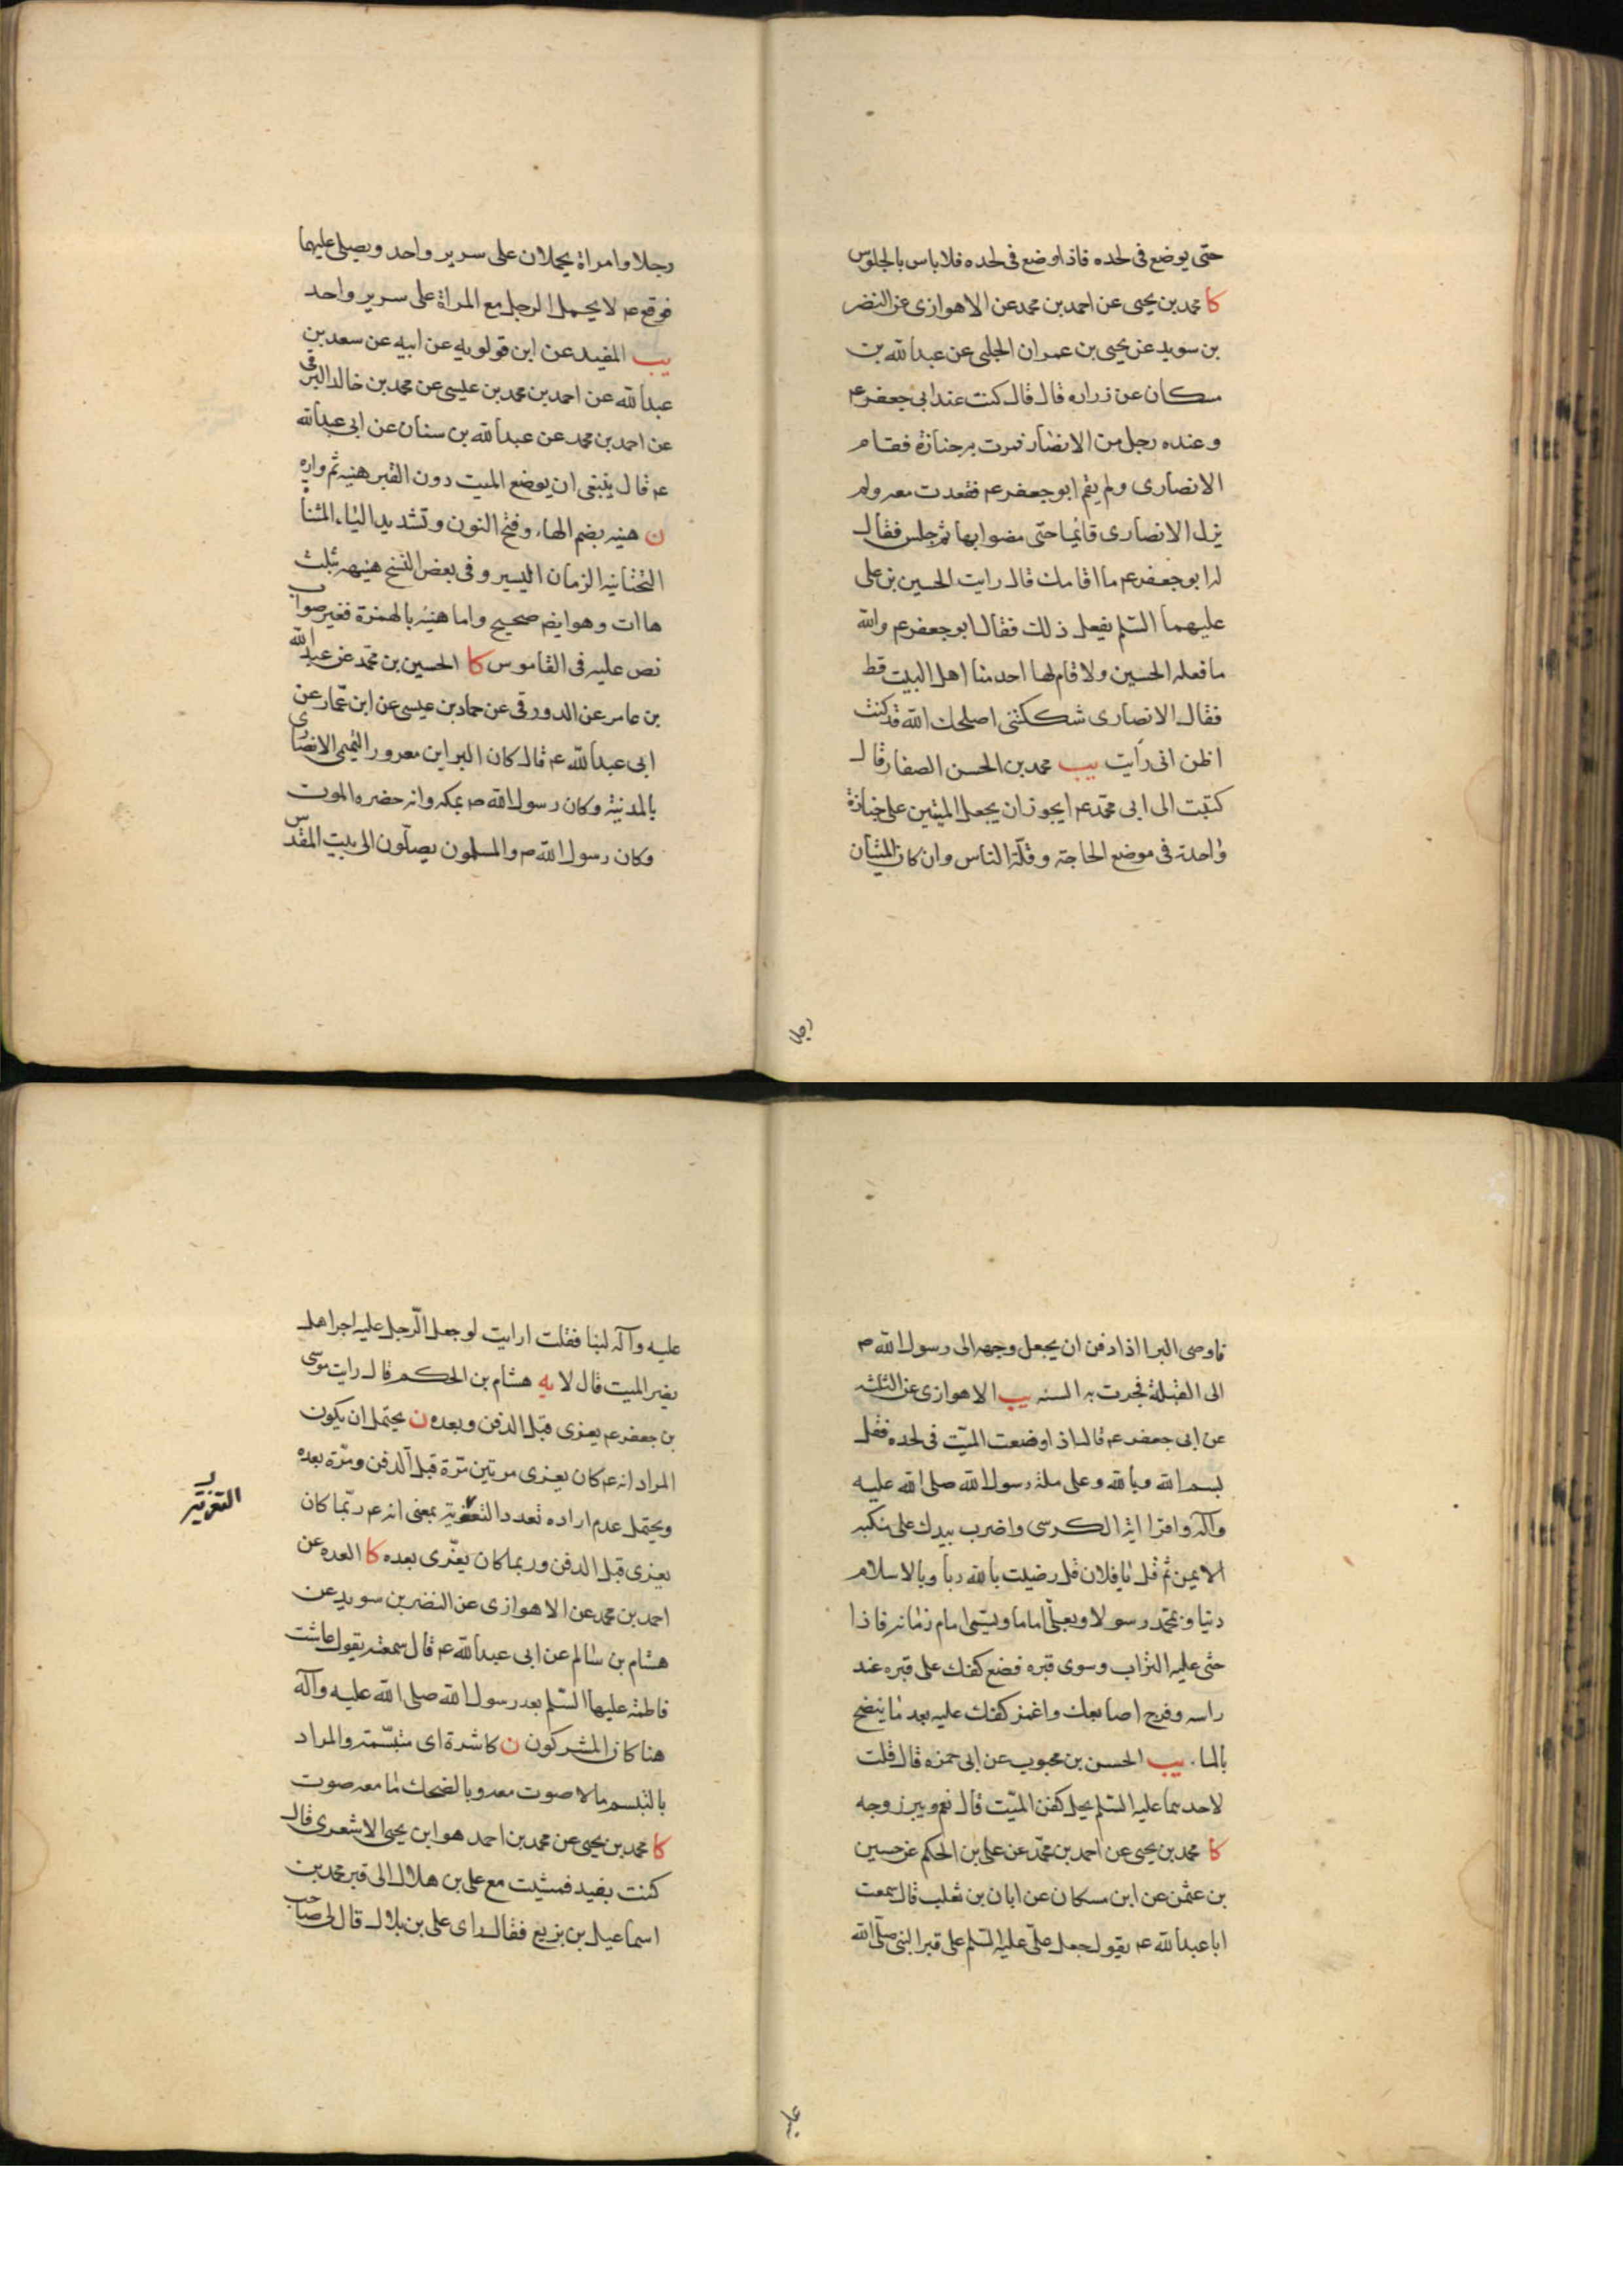 حتى يوضع فى لحده فاذا وضع فى لحده فلا باس بالجلوس
كا محمد بن يحيى عن احمد بن محمد عن الاهوازى عن النضر
بن سويد عن يحيى بن عمران الحلبى عن عبدالله بن
مسكان عن زراره قال قال كنت عند ابى جعفر ع
وعنده رجل من الانصار فمرت به جنازة فقام
الانصارى ولم يقم ابو جعفر ع فقعدت معه ولم
يزل الانصارى قائما حتى مضوا بها ثم جلس فقال
له ابو جعفر ع ما اقامك قال رايت الحسين بن على
عليهما السلم يفعل ذلك فقال ابو جعفر ع والله
ما فعله الحسين ولا قام لها احد منا اهل البيت قط
فقال الانصارى شككتنى اصلحك الله قد كنت
اظن انى رايت يب محمد بن الحسن الصفار قال
كتبت الى ابى محمد ع ايجوز ان يجعل الميتين على جنازة
واحدة فى موضع الحاجة وقلة الناس وان كان الميتان
رجلا
رجلا وامراة يحملان على سرير واحد ويصلى عليهما
فوقع ع لا يحمل الرجل مع المراة على سرير واحد
يب المفيد عن ابن قولويه عن ابيه عن سعد بن
عبدالله عن احمد بن محمد بن عيسى عن محمد بن خالد البرقى
عن احمد بن محمد عن عبدالله بن سنان عن ابى عبدالله
ع قال ينبغى ان يوضع الميت دون القبر هنيه ثم واره
ن هنيه بضم الهاء وفتح النون وتشديد الياء المثناة
التحتانيه الزمان اليسير وفى بعض النسخ هنيهه بثلث
هاات وهو ايضم صحيح واما هنيئه بالهمزة فغير صواب
نص عليه فى القاموس كا الحسين بن محمد عن عبد الله
بن عامر عن الدورقى عن حماد بن عيسى عن ابن عمار عن
ابى عبدالله ع قال كان البرا بن معرور التميمى الانصارى
بالمدنية وكان رسول الله ص بمكه وانه حضره الموت
وكان رسول الله ص والمسلمون يصلون الى بيت المقدس
فاوصى البرا اذا دفن ان يجعل وجهه الى رسول الله ص
الى القبلة فجرت به السنه يب الاهوازى عن الثلثه
عن ابى جعفر ع قال اذا وضعت الميت فى لحده فقل
بسم الله وبالله وعلى ملة رسول الله صلى الله عليه
وآله واقرا اية الكرسى واضرب بيدك على منكبه
الايمن ثم قل يا فلان قل رضيت بالله ربا وبالاسلام
دينا وبمحمد رسولا وبعلى اماما ويسمى امام زمانه فاذا
حثى عليه التراب وسوى قبره فضع كفك على قبره عند
راسه وفرج اصابعك واغمز كفك عليه بعد ما ينضح
بالماء يب الحسن بن محبوب عن ابى حمزه قال قلت
لاحدهما عليه السلم يحل كفن الميت قال نعم ويبرز وجهه
كا محمد بن يحيى عن احمد بن محمد عن على بن الحكم عن حسين
بن عثمن عن ابن مسكان عن ابان بن تغلب قال سمعت
ابا عبدالله ع يقول جعل على عليه السلم على قبر النبى صلى الله
عليه
عليه وآله لبنا فقلت ارايت لو جعل الرجل عليه اجرا هل
يضر الميت قال لا يه هشام بن الحكم قال رايت موسى
بن جعفر ع يعزى قبل الدفن وبعده ن يحتمل ان يكون
المراد انه ع كان يعزى مرتين مرة قبل الدفن ومرة بعده
ويحتمل عدم اراده تعدد التعزية بمعنى انه ع ربما كان
التعزية
يعزى قبل الدفن وربما كان يعزى بعده كا العده عن
احمد بن محمد عن الاهوازى عن النضر بن سويد عن
هشام بن سالم عن ابى عبدالله ع قال سمعته يقول عاشت
فاطمة عليها السلم بعد رسول الله صلى الله عليه وآله
هنا كان المشركون ن كاشرة اى متبسمة والمراد
بالتبسم ما لا صوت معه وبالضحك ما معه صوت
كا محمد بن يحيى عن محمد بن احمد هو ابن يحيى الاشعرى قال
كنت بفيد فمشيت مع على بن هلال الى قبر محمد بن
اسماعيل بن بزيع فقال اى على بن بلال قال لى صاحب